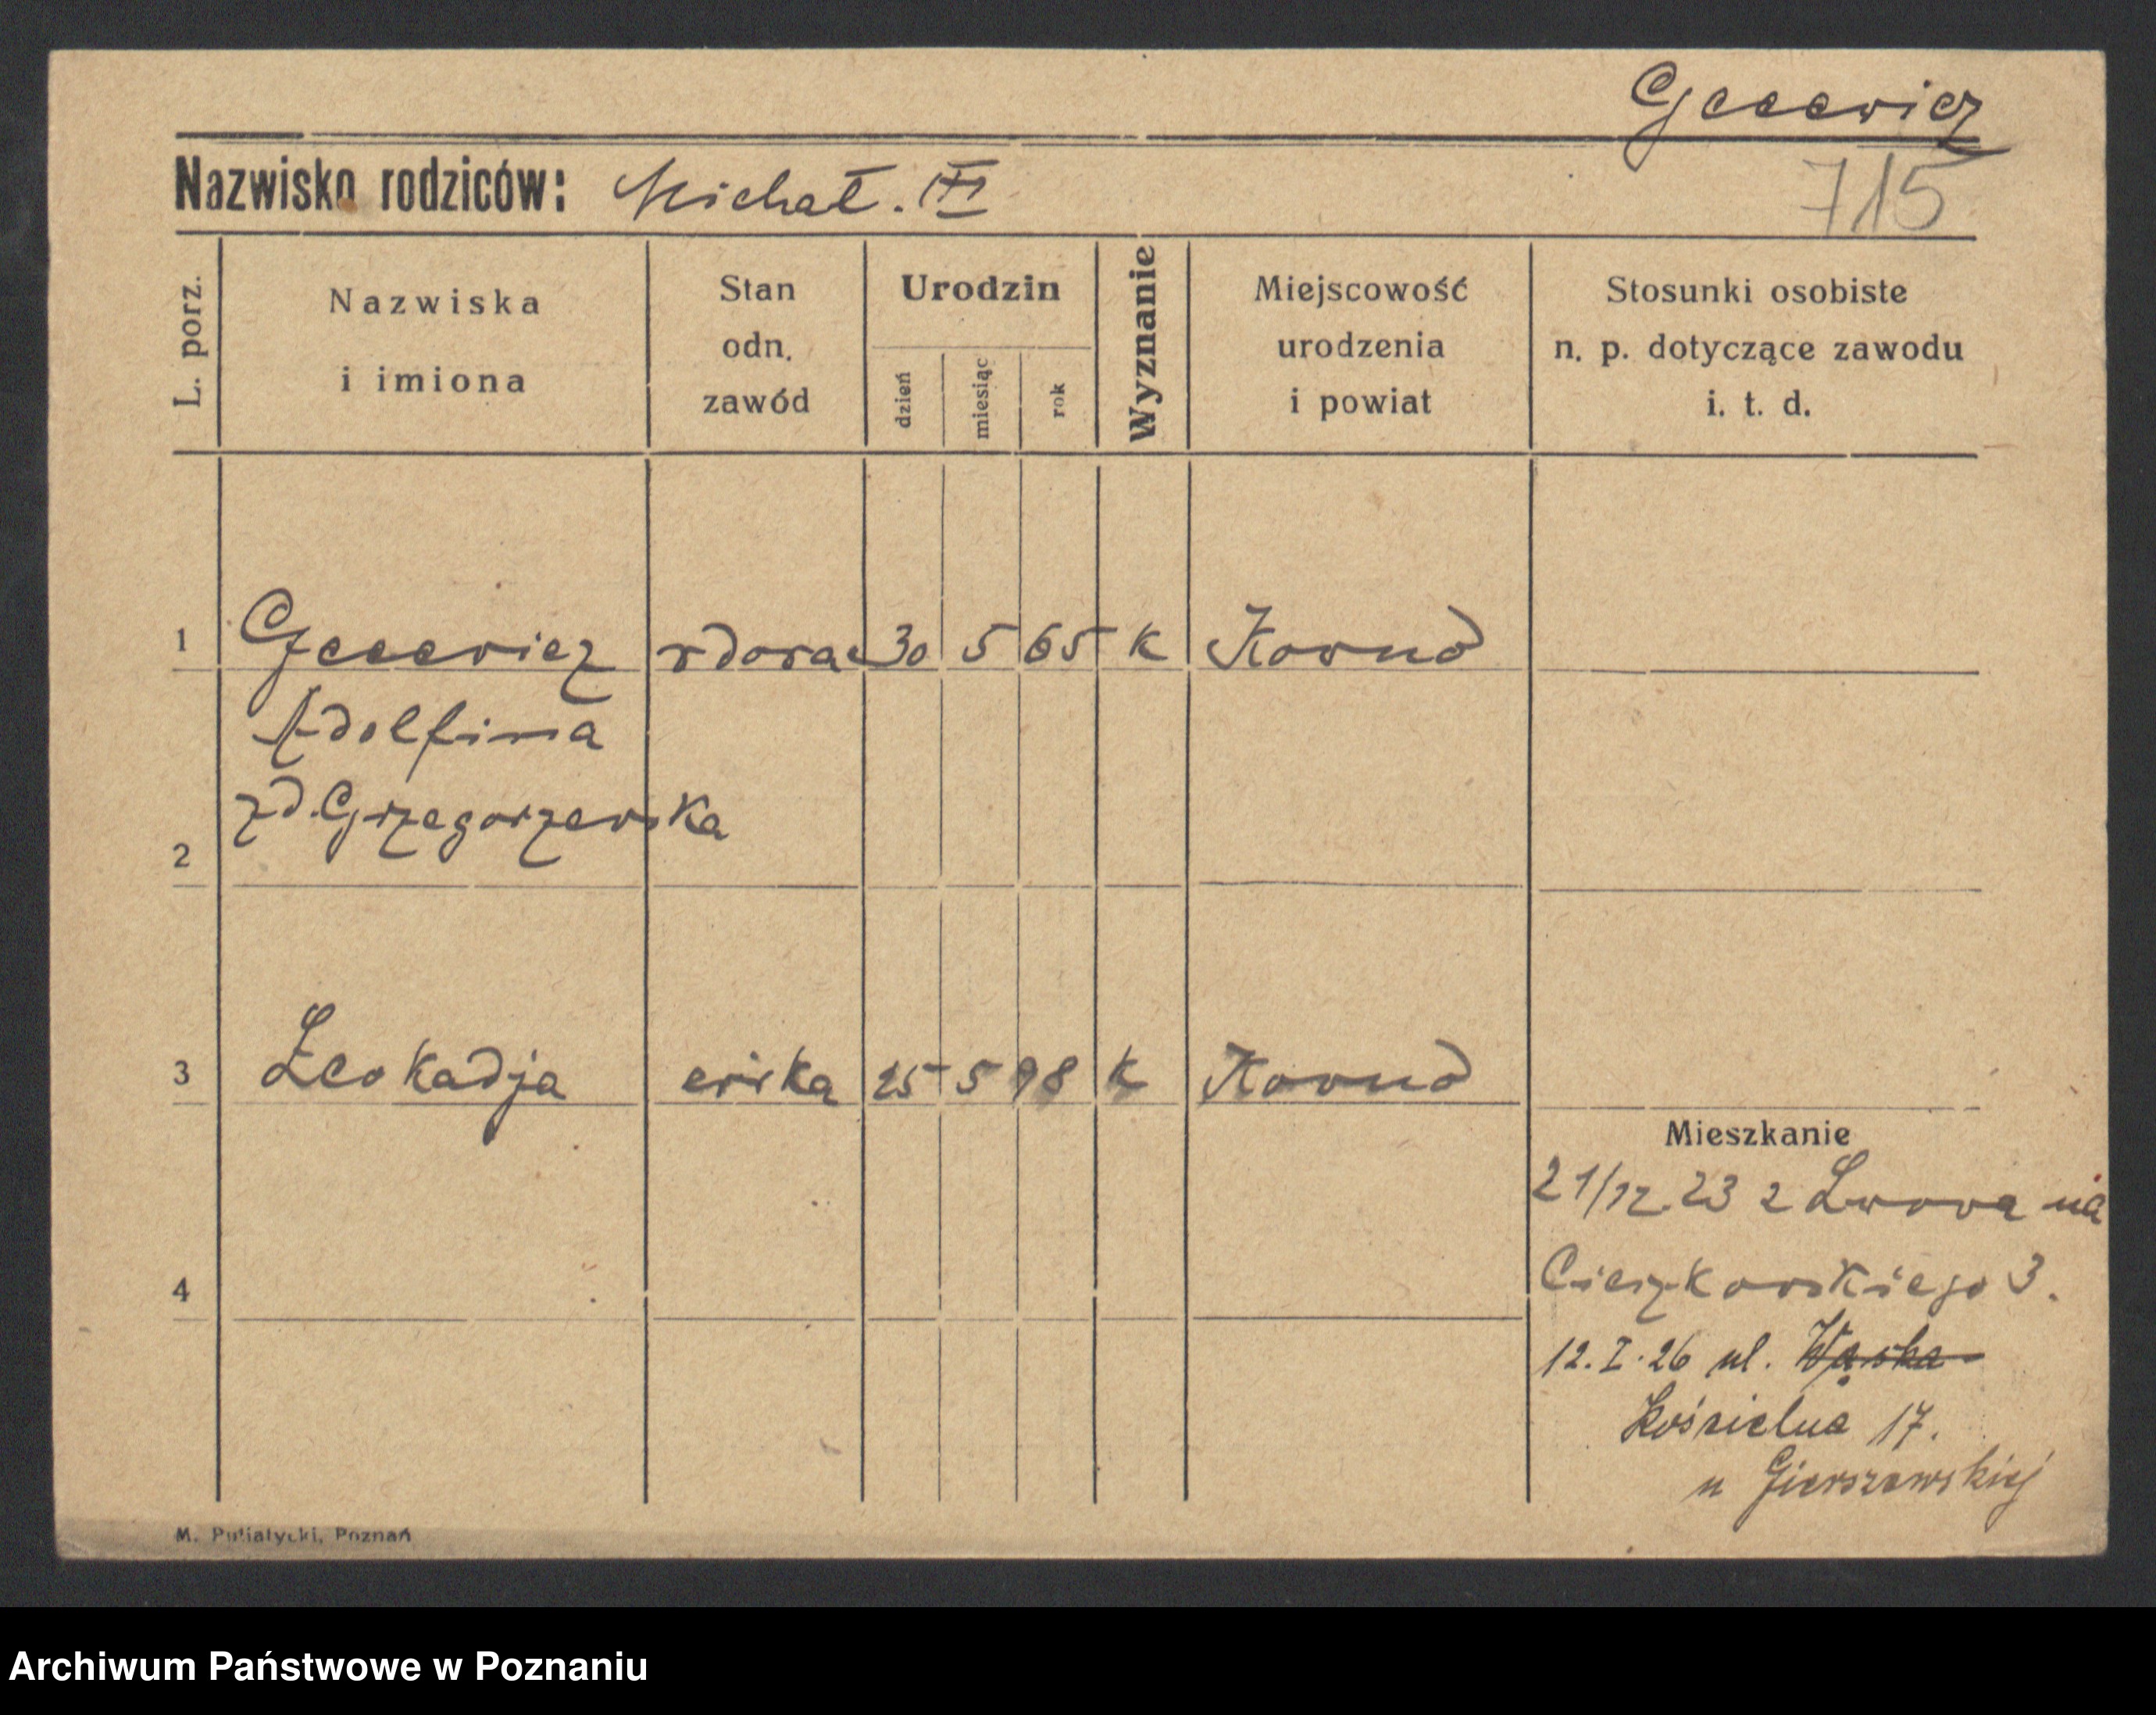 Gecewicz
Nazwisko rodziców: Michał. VI
715
L. porz.
Nazwiska
i imiona
Stan
odn.
zawód
Urodzin
dzień
miesiąc
rok
Wyznanie
Miejscowość
urodzenia
i powiat
Stosunki osobiste
n. p. dotyczące zawodu
i. t. d.
1 Gecewicz wdowa 30 5 65 K Kowno
Adolfina
zd. Grzegorzewska
2
3 Leokadja córka 25 5 98 K Kowno
Mieszkanie
21/12. 23 z Lwowa na
4
Cieszkowskiego 3.
12. I. 26 ul. Wąska
Kościelna 17.
u Gierszewskiej
M. Putiatycki, Poznań
Archiwum Państwowe w Poznaniu